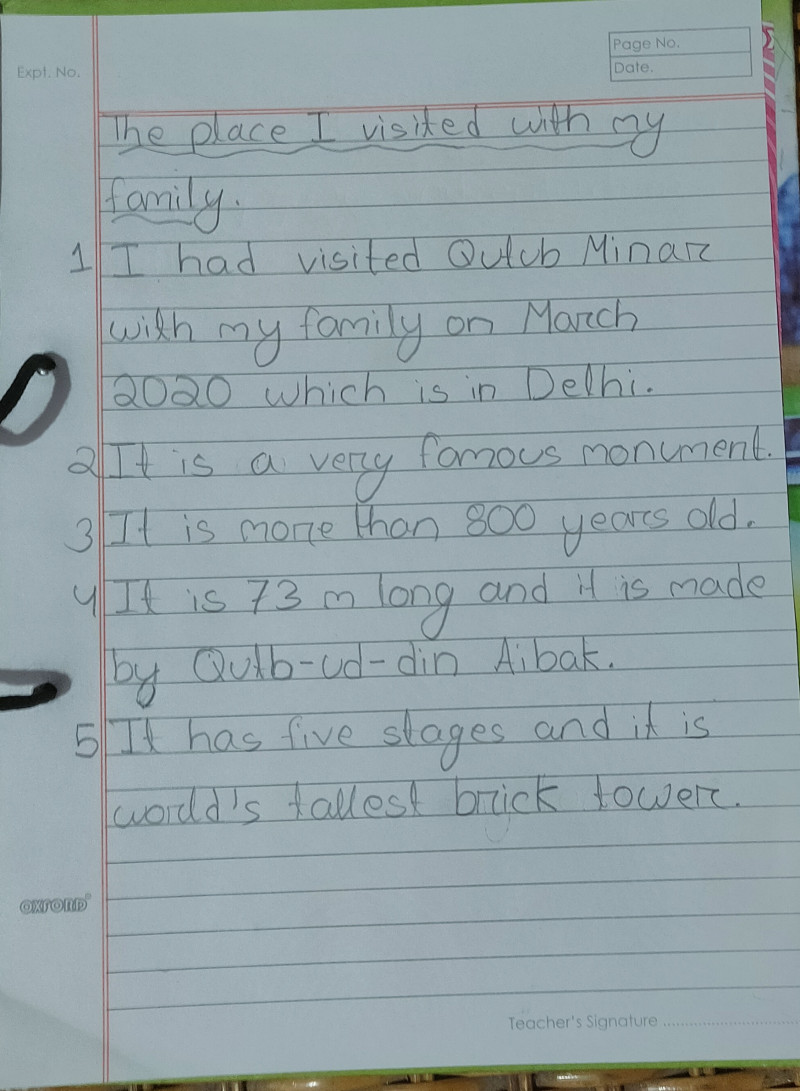 Expt. No.
Page No.
Date.
The place I visited with my
family.
1 I had visited Qutub Minar
with my family on March
2020 which is in Delhi.
2 It is a very famous monument.
3 It is more than 800 years old.
4 It is 73 m long and it is made
by Qutb-ud-din Aibak.
5 It has five stages and it is
world's tallest brick tower.
OXFORD
Teacher's Signature